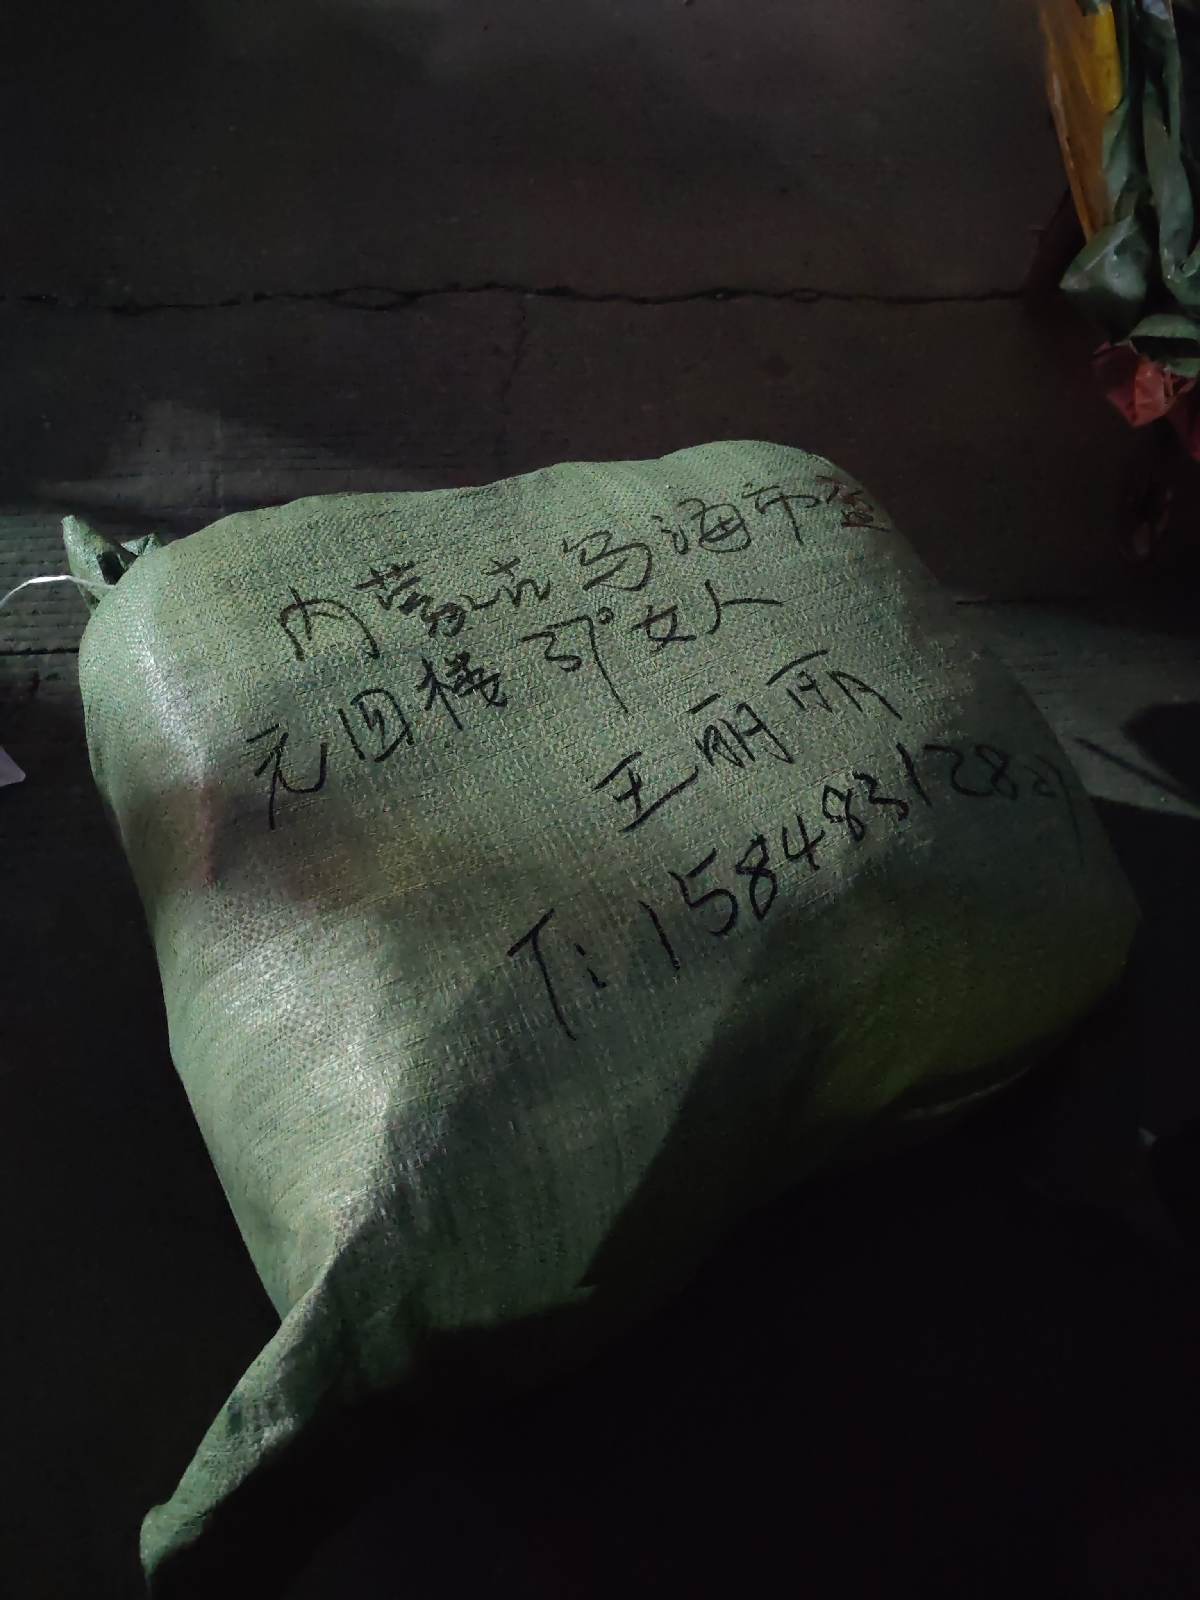 内蒙古乌海市蓝
元四楼37°女人
王丽丽
T:1584831282